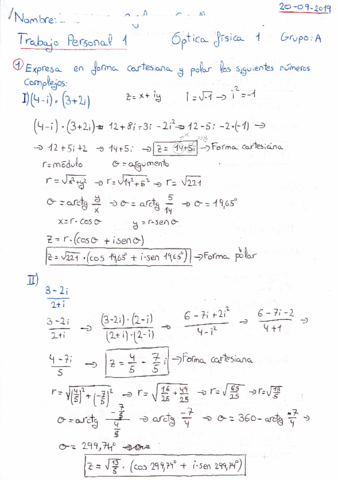 20-09-2019
Nombre:
Trabajo Personal 1 Óptica física 1 Grupo: A
① Expresa en forma cartesiana y polar los siguientes números
complejos:
I) (4-i)·(3+2i) z = x+iy i = √-1 → i² = -1
(4-i)·(3+2i) = 12+8i-3i-2i² = 12-5i-2·(-1) →
→ 12+5i+2 → 14+5i → z = 14+5i → Forma cartesiana
r = módulo σ = argumento
r = √x²+y² → r = √14²+5² → r = √221
σ = arctg y/x → σ = arctg 5/14 → σ = 19,65°
x = r·cosσ y = r·senσ
z = r·(cosσ + i senσ)
z = √221·(cos 19,65° + i·sen 19,65°) → Forma polar
II)
3-2i/2+i
3-2i/2+i → (3-2i)·(2-i)/(2+i)·(2-i) → 6-7i+2i²/4-i² → 6-7i-2/4+1 →
4-7i/5 → z = 4/5 - 7/5 i → Forma cartesiana
r = √(4/5)²+(-7/5)² → r = √16/25+49/25 → r = √65/25 → r = √13/5
σ = arctg -7/5/4/5 → arctg -7/4 → σ = 360-arctg -7/4 →
σ = 299,74°
z = √13/5·(cos 299,74° + i·sen 299,74°)